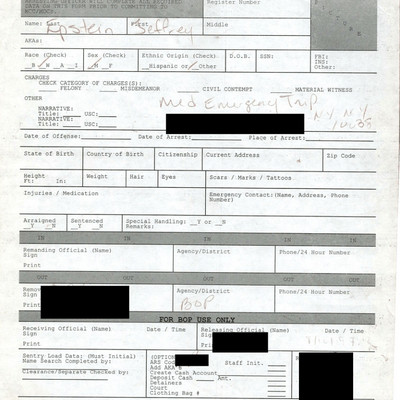 DATA ON THIS FORM PRIOR TO COMMITTING TO
Register Number
Name: Last First Middle
Epstein Jeffrey
AKAs:
Race (Check) Sex (Check) Ethnic Origin (Check) D.O.B. SSN: FBI:
_B_W_A_I _M_F _Hispanic or _Other INS:
CHARGES
CHECK CATEGORY OF CHARGES(S):
FELONY MISDEMEANOR CIVIL CONTEMPT MATERIAL WITNESS
OTHER
Med Emergency Trip
NARRATIVE:
Title: USC:
NARRATIVE:
Title: USC:
NY NY
Date of Offense: Date of Arrest: Place of Arrest:
State of Birth Country of Birth Citizenship Current Address Zip Code
Height Weight Hair Eyes Scars / Marks / Tattoos
Ft: In:
Injuries / Medication Emergency Contact:(Name, Address, Phone
Number)
Arraigned Sentenced Special Handling: _Y or _N
_Y _N _Y _N Remarks:
IN IN IN IN IN
Remanding Official (Name) Agency/District Phone/24 Hour Number
Sign
Print
OUT OUT OUT OUT OUT
Agency/District Phone/24 Hour Number
Sign
BOP
Print
FOR BOP USE ONLY
Receiving Official (Name) Date / Time Releasing Official (Name) Date / Time
Sign Sign
Print Print
Sentry Load Data: (Must Initial) Staff Init.
Name Search Completed by: ARS
Add AKA's
Create Cash Account
Clearance/Separate Checked by: Deposit Cash Amt.
Detainers
Court
Clothing Bag #